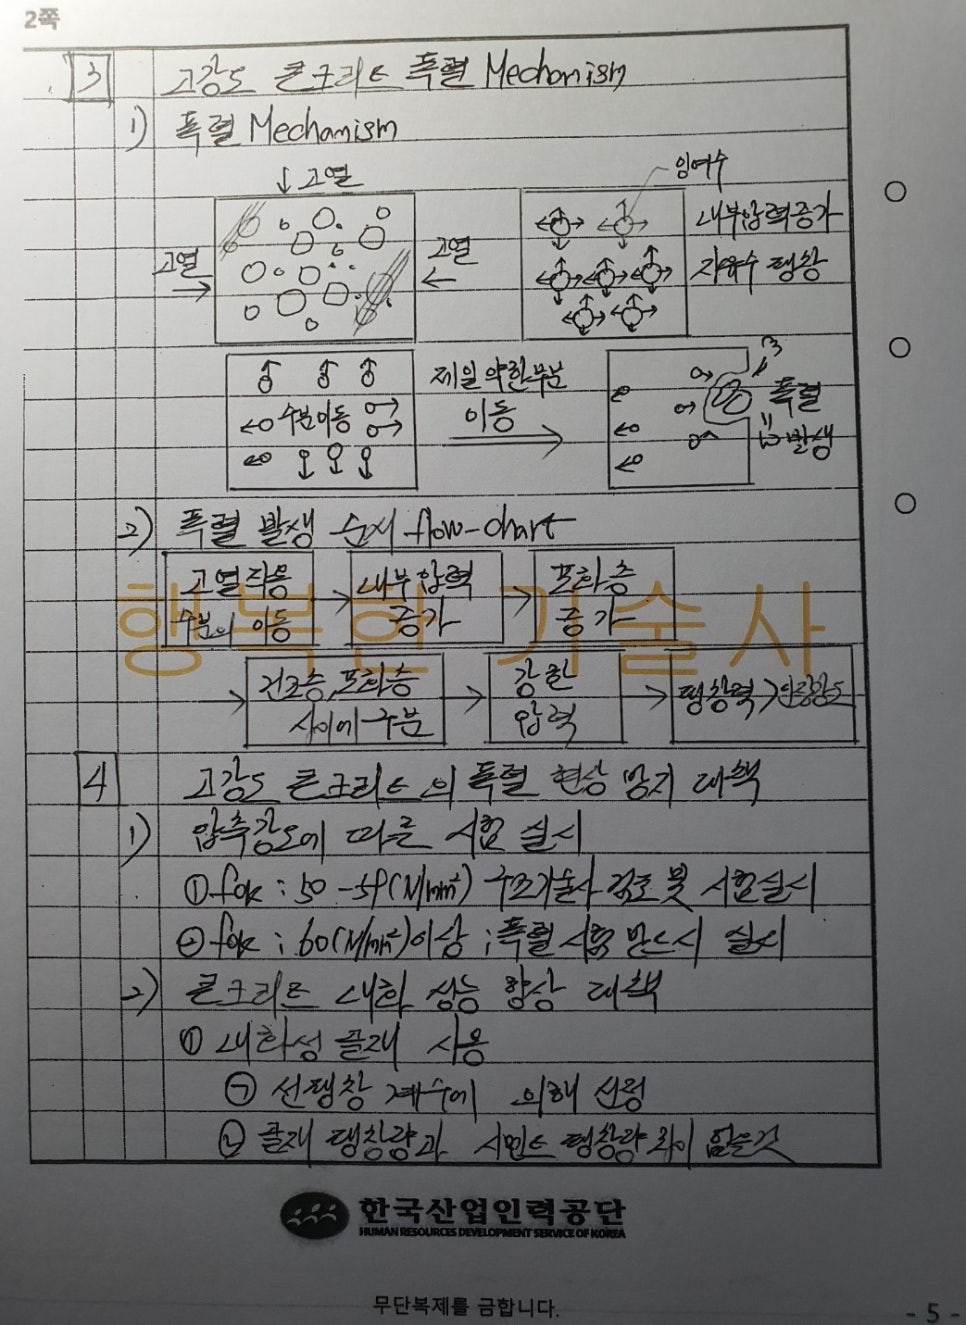 2쪽
3 고강도 콘크리트 폭렬 Mechanism
1) 폭렬 Mechanism
↓ 고열
고열 →
고열 ←
잉여수
내부압력증가
자유수 팽창
수분이동
제일 약한부분
이동
폭렬
발생
2) 폭렬 발생 순서 flow-chart
고열작용
수분의 이동
→ 내부압력
증가
→ 포화층
증가
→ 건조층, 포화층
사이에 구분
→ 강한
압력
→ 팽창력 > 인장강도
행복한 기술사
4 고강도 콘크리트의 폭렬 현상 방지 대책
1) 압축강도에 따른 시험 실시
① fck : 50-59(N/mm²) 구조기술사 검토 및 시험실시
② fck : 60(N/mm²)이상 ; 폭렬 시험 반드시 실시
2) 콘크리트 내화 성능 향상 대책
① 내화성 골재 사용
㉠ 선팽창 계수에 의해 선정
㉡ 골재 팽창량과 시멘트 팽창량 차이 없을것
한국산업인력공단
HUMAN RESOURCES DEVELOPMENT SERVICE OF KOREA
무단복제를 금합니다.
- 5 -